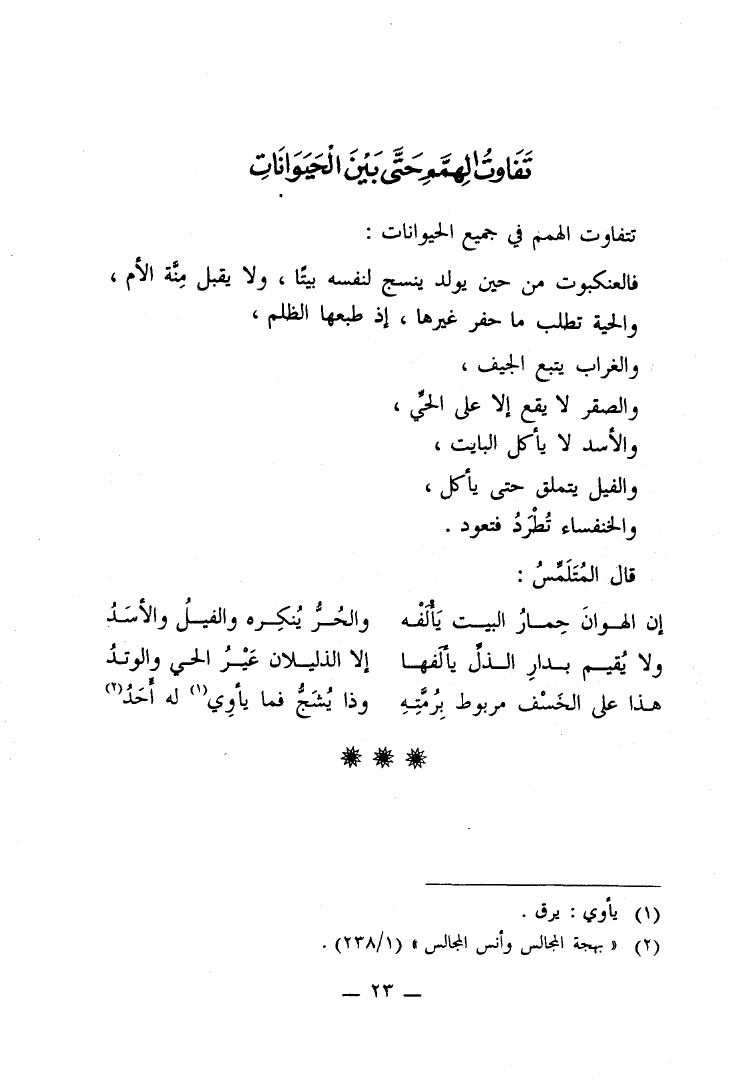 تَفَاوتُ الهِمَمِ حَتَّى بَيْنَ الْحَيَوَانَاتِ
تتفاوت الهمم في جميع الحيوانات :
فالعنكبوت من حين يولد ينسج لنفسه بيتًا ، ولا يقبل مِنَّة الأم ،
والحية تطلب ما حفر غيرها ، إذ طبعها الظلم ،
والغراب يتبع الجيف ،
والصقر لا يقع إلا على الحيِّ ،
والأسد لا يأكل البايت ،
والفيل يتملق حتى يأكل ،
والخنفساء تُطْرَدُ فتعود .
قال المُتَلَمِّسُ :
إن الهوانَ حِمارُ البيت يَأْلَفُه والحُرُّ يُنكِره والفيلُ والأسَدُ
ولا يُقيم بدارِ الذلِّ يألَفها إلا الذليلان عَيْرُ الحي والوتدُ
هذا على الخَسْف مربوط بِرُمَّتِهِ وذا يُشَجُّ فما يأوِي(١) له أَحَدُ(٢)
(١) يأوي : يرق .
(٢) « بهجة المجالس وأنس المجالس » (٢٣٨/١) .
— ٢٣ —